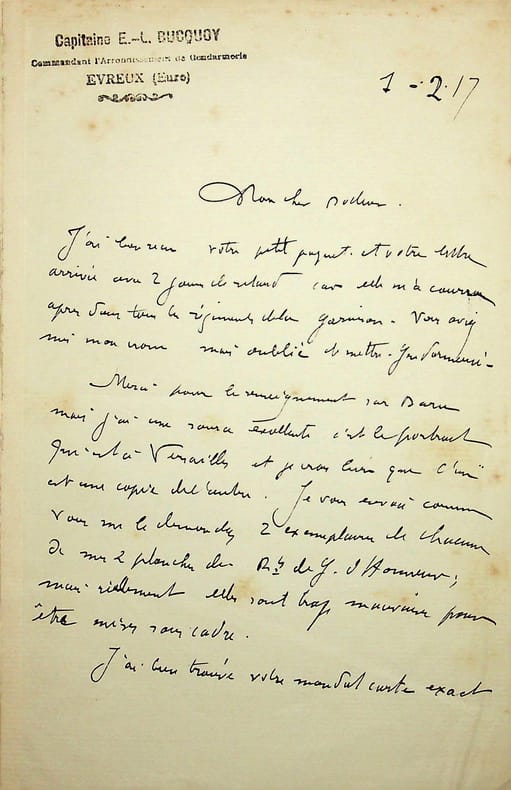 Capitaine E.-L. BUCQUOY
Commandant l'Arrondissement de Gendarmerie
EVREUX (Eure)
1 - 2.17
Mon cher Docteur.
J'ai bien reçu votre petit paquet et votre lettre
arrivée avec 2 jours de retard car elle m'a couru
après dans tous les régiments de la garnison - Vous aviez
mis mon nom mais oublié de mettre - Gendarmerie -
Merci pour le renseignement sur Daru
mais j'ai une source excellente c'est le portrait
qui est à Versailles et je crois bien que l'un
est une copie de l'autre. Je vous envoie comme
vous me le demandez 2 exemplaires de chacune
de mes 2 planches de de G. d'Honneur;
mais réellement elles sont trop mauvaises pour
être mises sous cadre.
J'ai bien trouvé votre mandat carte exact